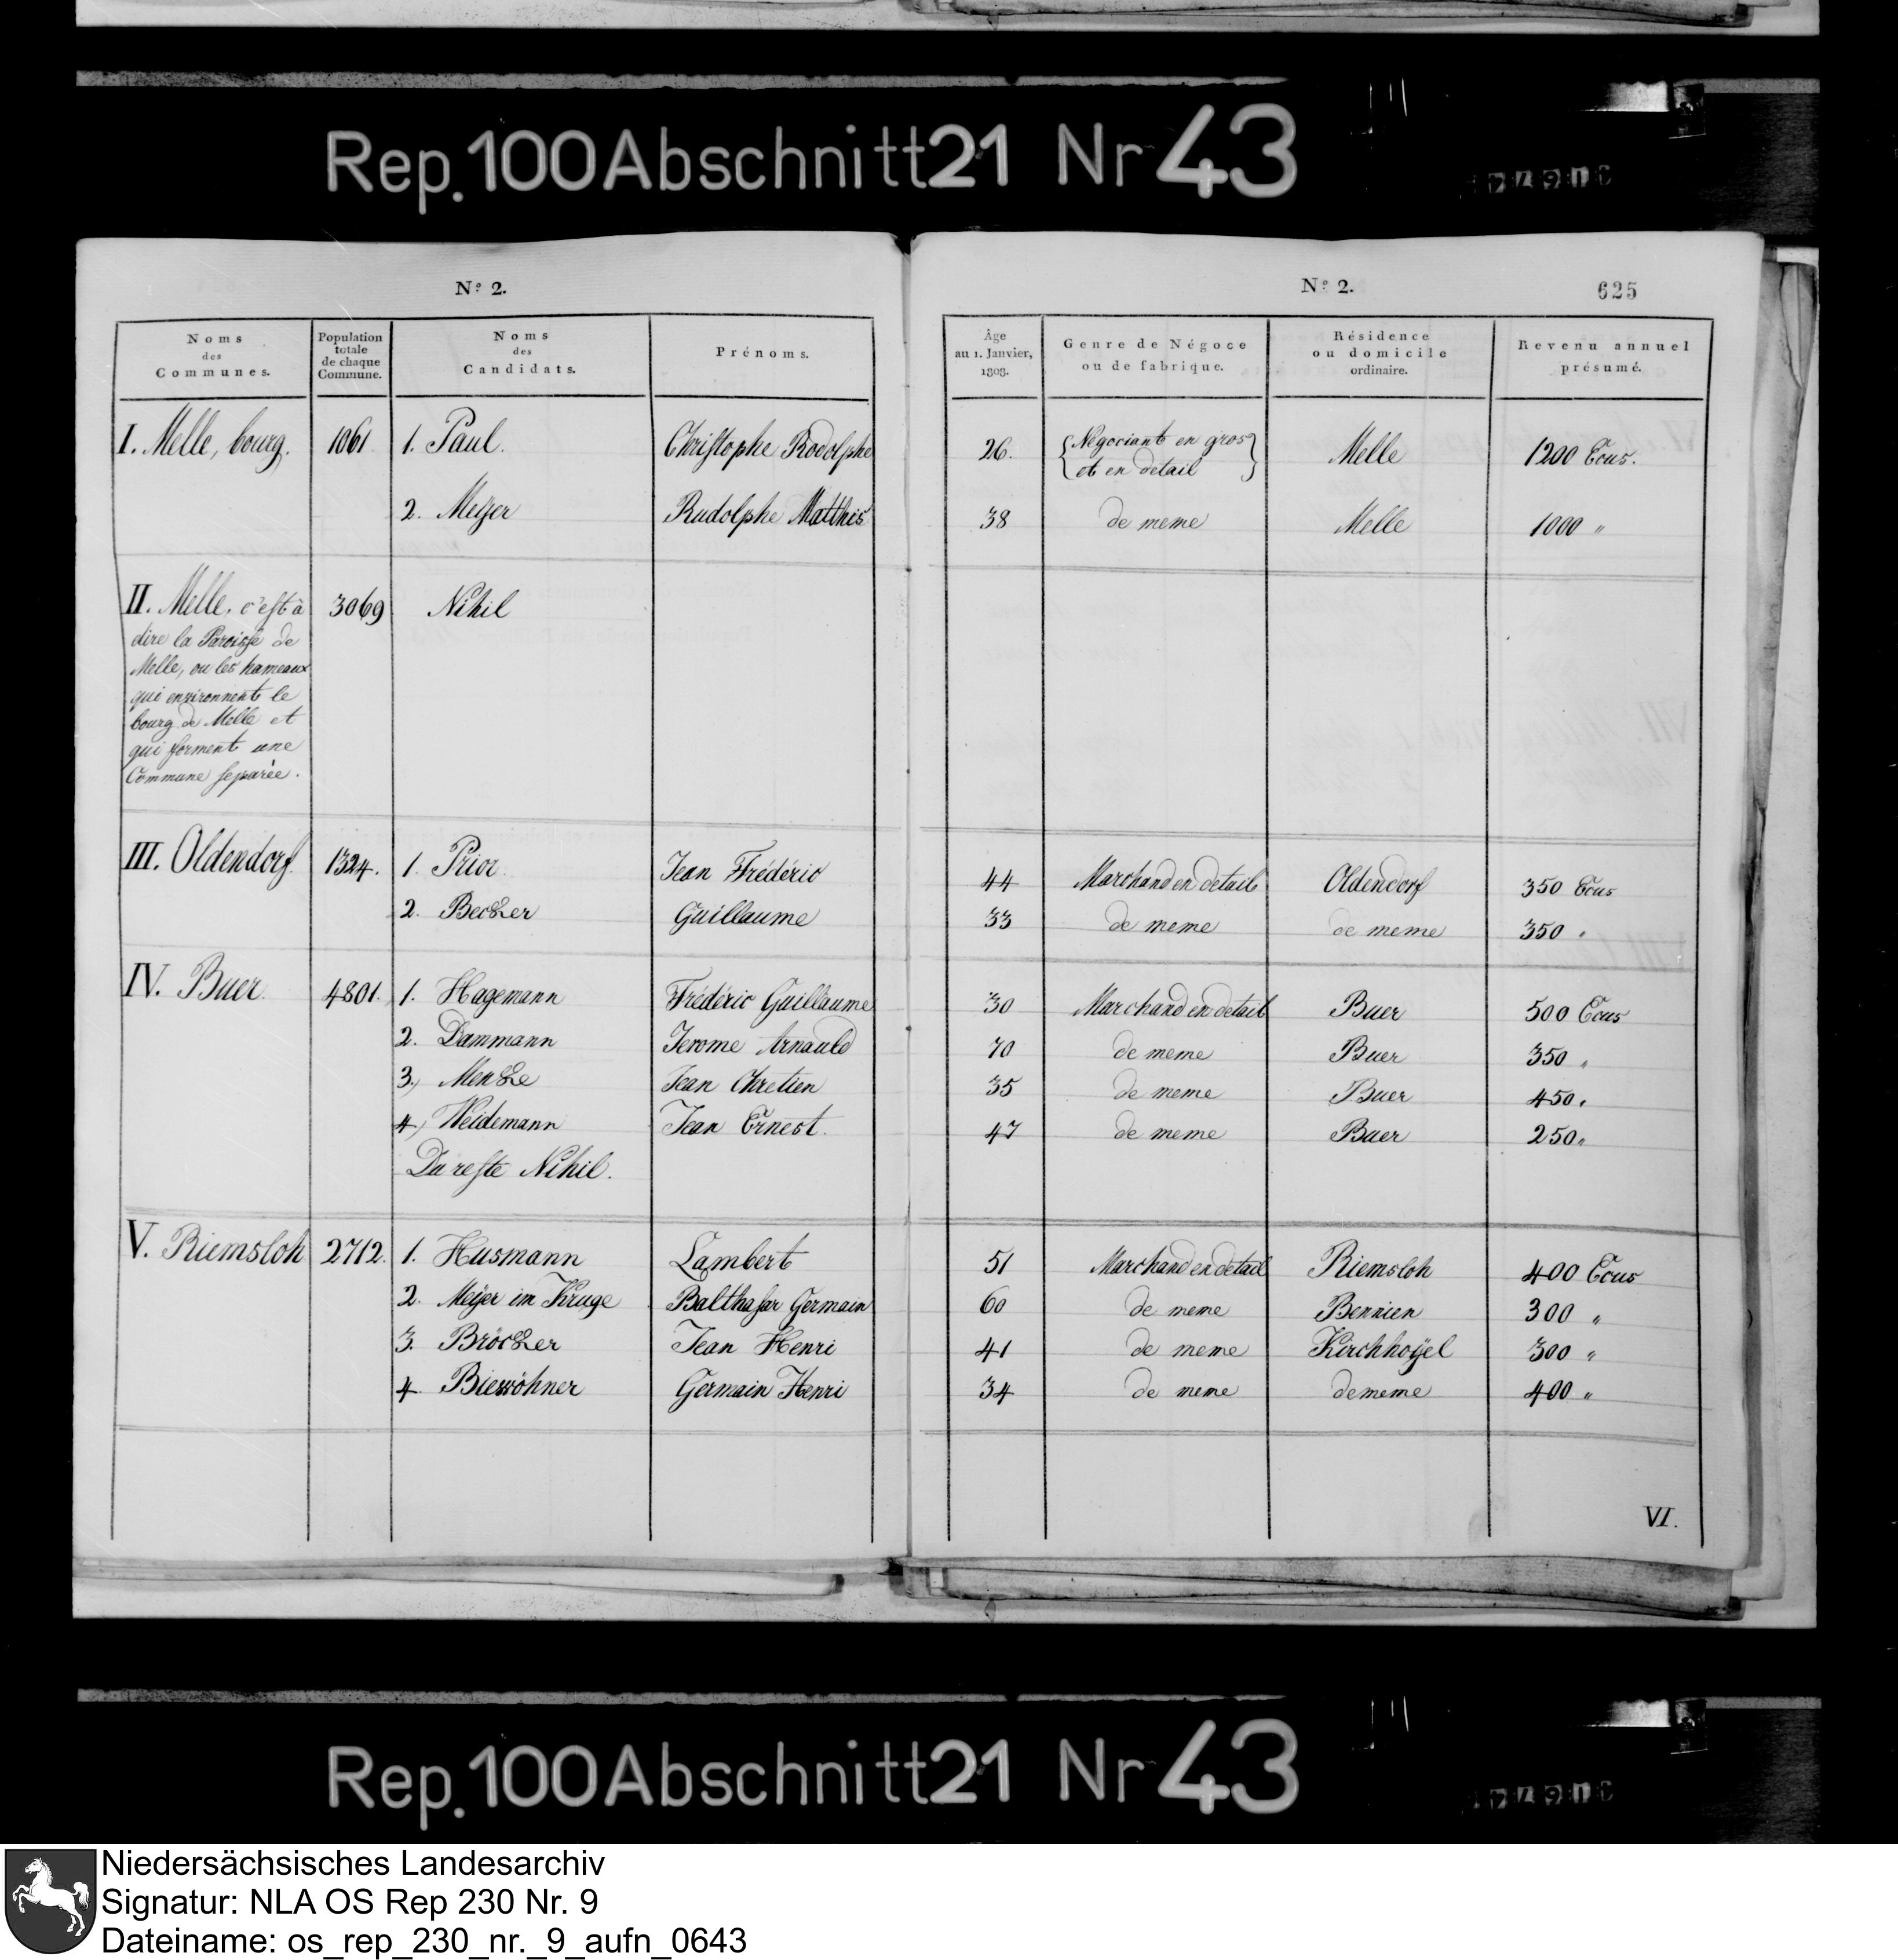 Rep. 100 Abschnitt 21 Nr 43
Nº 2.
Nº 2.
625
Noms des Communes.
Population totale de chaque Commune.
Noms des Candidats.
Prénoms.
Âge au 1. Janvier, 1808.
Genre de Négoce ou de fabrique.
Résidence ou domicile ordinaire.
Revenu annuel présumé.
I. Melle, bourg. 1061 1. Paul. Christophe Rodolphe 26. Négociant en gros et en detail Melle 1200 Ecus.
2. Meÿer Rudolphe Matthis 38 de meme Melle 1000 "
II. Melle, c'est à 3069 Nihil
dire la Paroisse de
Melle, ou les hameaux
qui environnent le
bourg de Melle et
qui forment une
Commune separèe.
III. Oldendorf. 1324. 1. Prior. Jean Frédéric 44 Marchand en detail Oldendorf 350 Ecus
2. Becker Guillaume 33 de meme de meme 350 "
IV. Buer. 4801. 1. Hagemann Frédéric Guillaume 30 Marchand en detail Buer 500 Ecus
2. Dammann Jerome Arnauld 70 de meme Buer 350 "
3.) Menke Jean Chretien 35 de meme Buer 450 "
4.) Weidemann Jean Ernest. 47 de meme Buer 250 "
Du reste Nihil.
V. Riemsloh 2712. 1. Husmann Lambert 51 Marchand en detail Riemsloh 400 Ecus
2. Meÿer im Kruge Balthasar Germain 60 de meme Bennien 300 "
3. Bröcker Jean Henri 41 de meme Kirchhoÿel 300 "
4. Biewöhner Germain Henri 34 de meme de meme 400 "
VI.
Rep. 100 Abschnitt 21 Nr 43
Niedersächsisches Landesarchiv
Signatur: NLA OS Rep 230 Nr. 9
Dateiname: os_rep_230_nr._9_aufn_0643